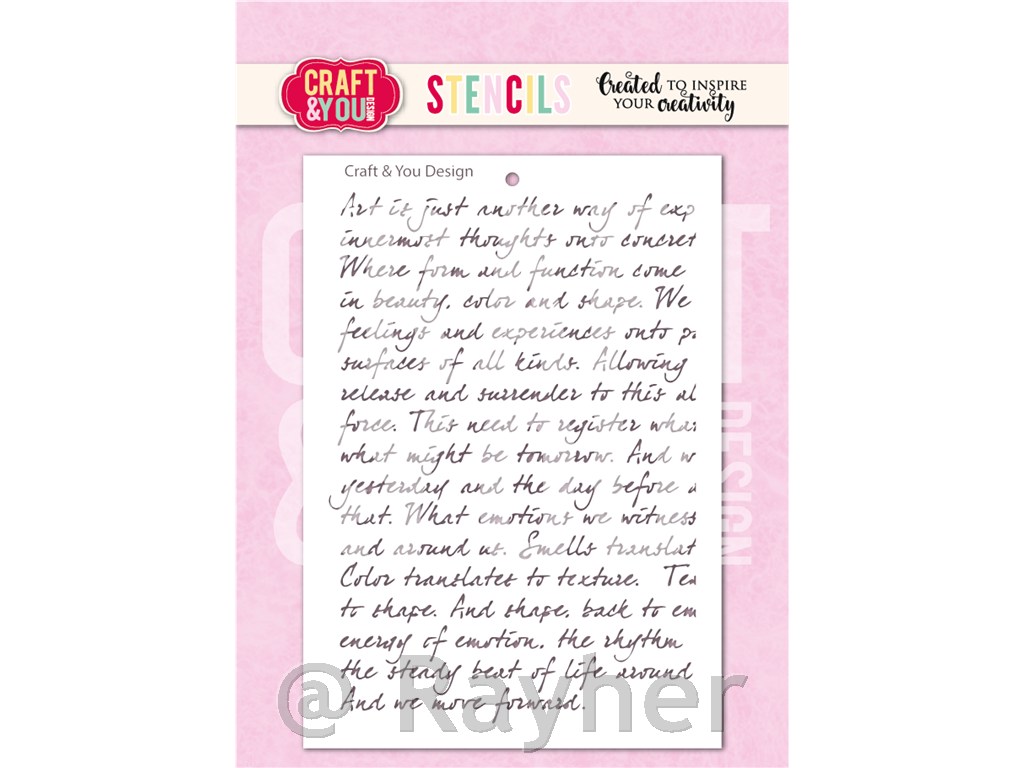 CRAFT
&YOU
DESIGN
STENCILS
Created TO INSPIRE
YOUR creativity
Craft & You Design
Art is just another way of exp
innermost thoughts onto concret
Where form and function come
in beauty, color and shape. We
feelings and experiences onto p
surfaces of all kinds. Allowing
release and surrender to this al
force. This need to register what
what might be tomorrow. And w
yesterday and the day before a
that. What emotions we witness
and around us. Smells translat
Color translates to texture. Tex
to shape. And shape, back to em
energy of emotion, the rhythm
the steady beat of life around
And we move forward.
& DESIGN
@ Rayher